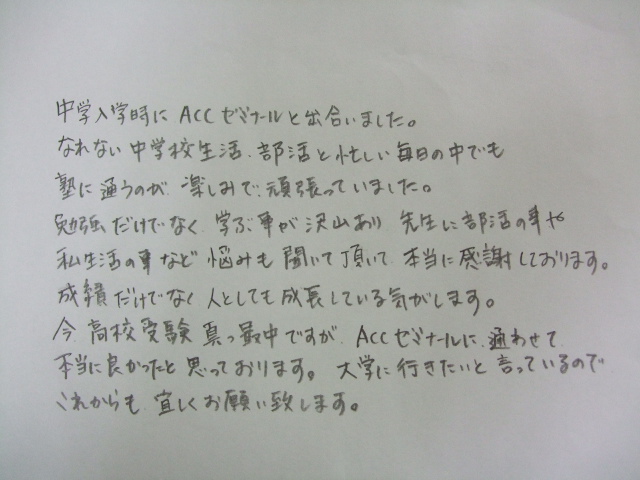 中学入学時に ACCゼミナールと出合いました。
なれない中学校生活、部活と忙しい毎日の中でも
塾に通うのが、楽しみで、頑張っていました。
勉強だけでなく、学ぶ事が沢山あり 先生に部活の事や
私生活の事など 悩みも聞いて頂いて、本当に感謝しております。
成績だけでなく人としても成長している気がします。
今、高校受験真っ最中ですが、ACCゼミナールに、通わせて、
本当に良かったと思っております。大学に行きたいと言っているので
これからも、宜しくお願い致します。